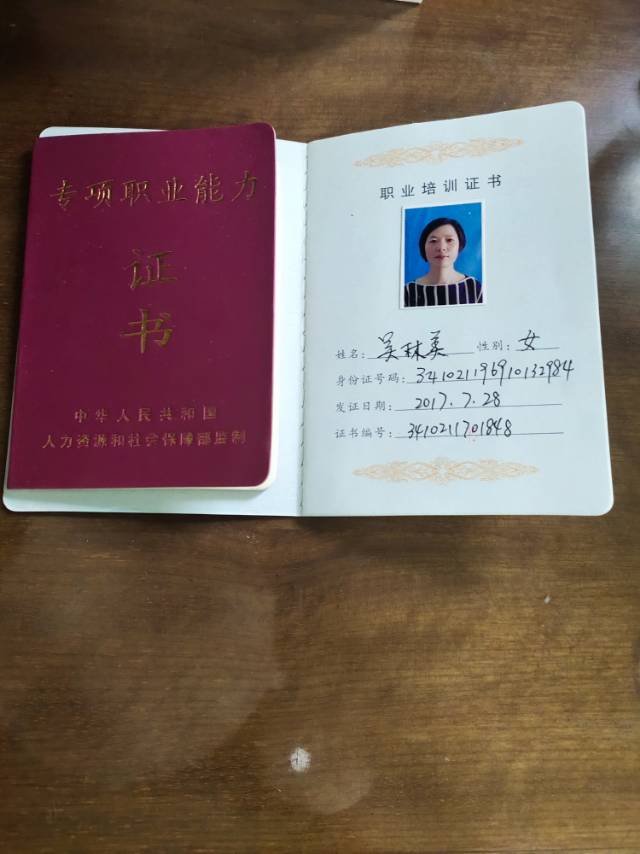 专项职业能力
证
书
中华人民共和国
人力资源和社会保障部监制
职业培训证书
姓名：吴林英 性别：女
身份证号码：341021196910132984
发证日期：2017.7.28
证书编号：3410211701848